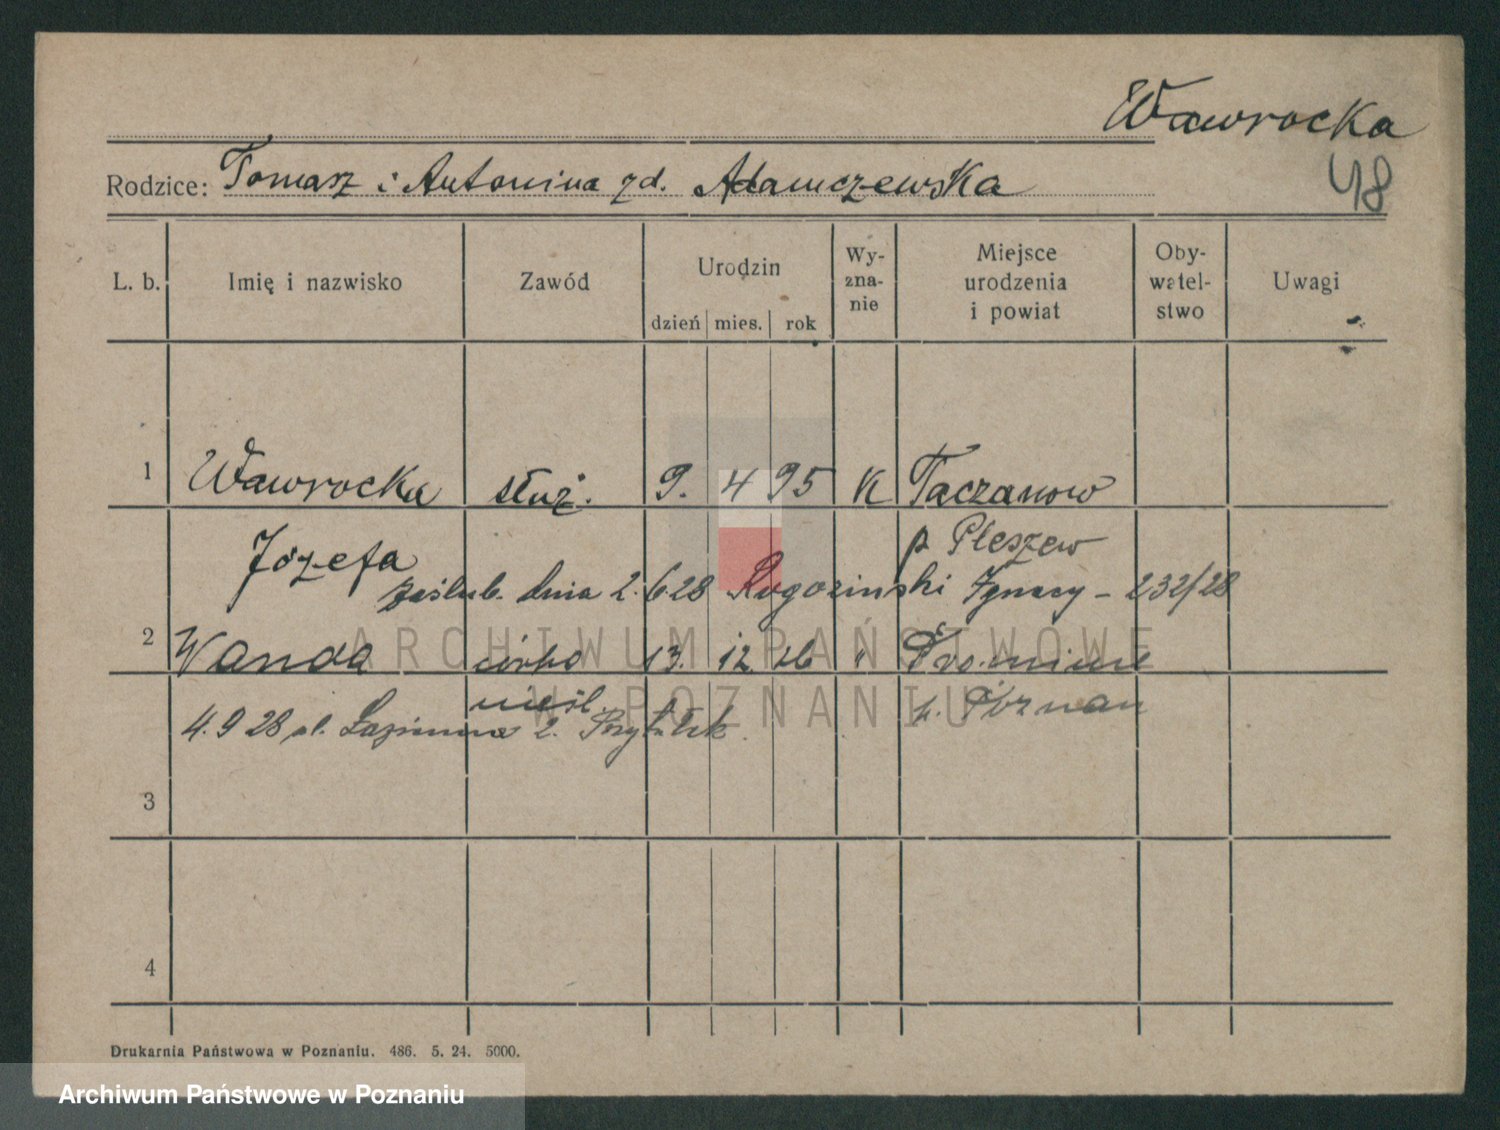 Wawrocka
48
Rodzice: Tomasz i Antonina zd. Adamczewska
L. b. Imię i nazwisko Zawód Urodzin dzień mies. rok Wy-zna-nie Miejsce urodzenia i powiat Oby-watel-stwo Uwagi
1 Wawrocka służ. 9. 4 95 K Taczanow
Józefa p. Pleszew
zaślub. dnia 2.6.28 Rogozinski Ignacy - 232/28
2 Wanda córka 13. 12. 26 "
nieśl. p. Poznan
4.9 28 2.
3
4
ARCHIWUM PAŃSTWOWE
W POZNANIU
Drukarnia Państwowa w Poznaniu. 486. 5. 24. 5000.
Archiwum Państwowe w Poznaniu